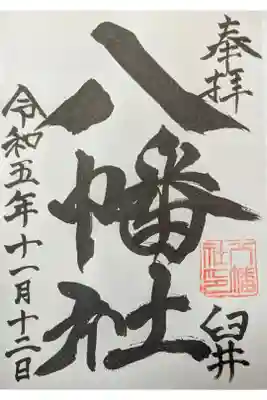 奉拝
臼井
八幡社
八幡
社印
令和五年十一月十二日